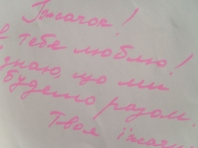 Їжачок!
тебе люблю!
знаю, що ми
будемо разом.
Твоя їжач